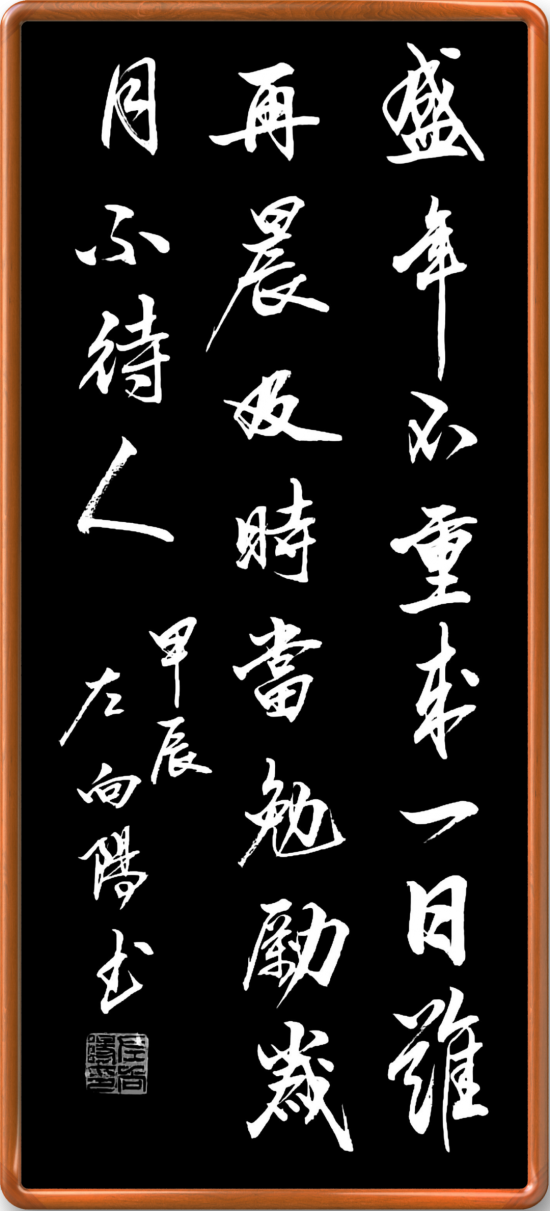 盛年不重来一日難
再晨及時當勉勵歲
月不待人
甲辰
左向陽书
左向陽印